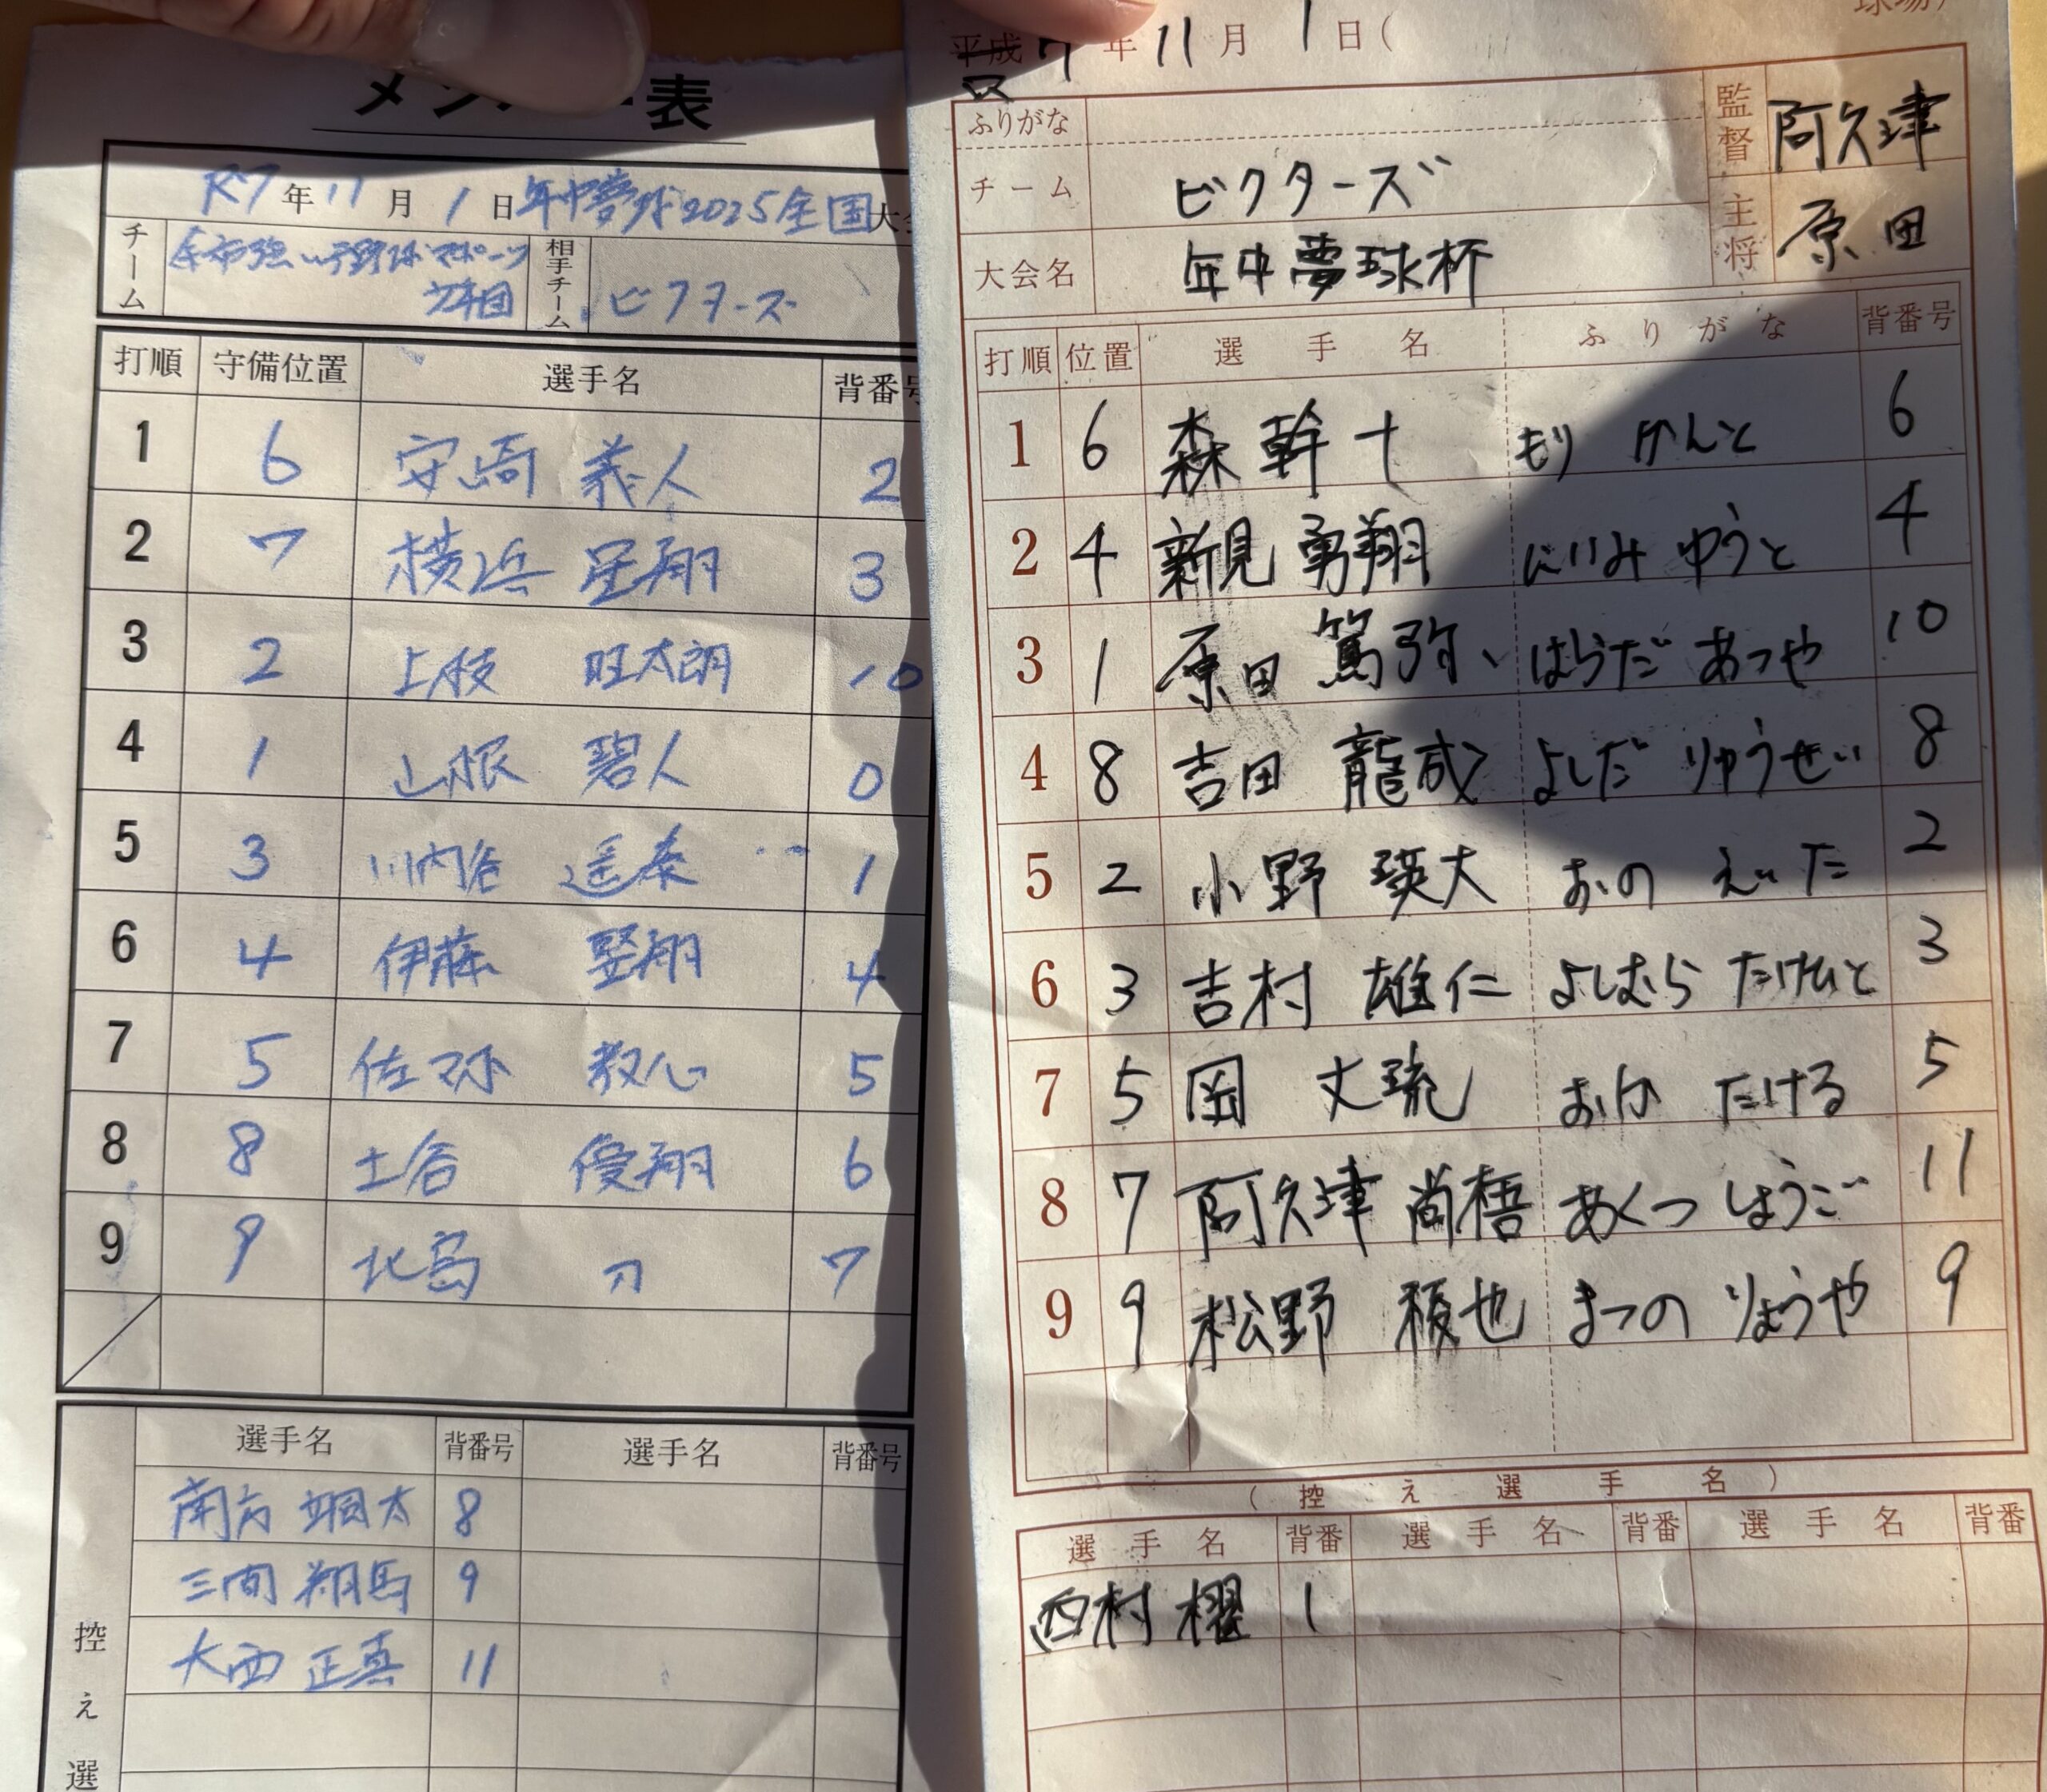 メンバー表
R7年11月1日年中夢球2025全国大会
チーム
スポーツ
少年団
相手チーム
ビクターズ
打順 守備位置 選手名 背番号
1 6 安崎 義人 2
2 7 横浜 星翔 3
3 2 上枝 旺太朗 10
4 1 山根 碧人 0
5 3 川内谷 遥泰 1
6 4 伊藤 翔 4
7 5 佐々 心 5
8 8 土谷 優翔 6
9 9 北島 7
選手名 背番号 選手名 背番号
南方 颯太 8
三間 翔馬 9
大西 正真 11
控え選
平成 7年11月1日(
ふりがな
チーム ビクターズ
大会名 年中夢球杯
監督 阿久津
主将 原田
打順 位置 選手名 ふりがな 背番号
1 6 森 幹十 もり かんと 6
2 4 新見 勇翔 にいみ ゆうと 4
3 1 原田 篤弥 はらだ あつや 10
4 8 吉田 龍成 よしだ りゅうせい 8
5 2 小野 瑛大 おの えいた 2
6 3 吉村 雄仁 よしむら たけひと 3
7 5 岡 丈琉 おか たける 5
8 7 阿久津 尚梧 あくつ しょうご 11
9 9 松野 稜也 まつの りょうや 9
(控え選手名)
選手名 背番 選手名 背番 選手名 背番
西村 櫂 1